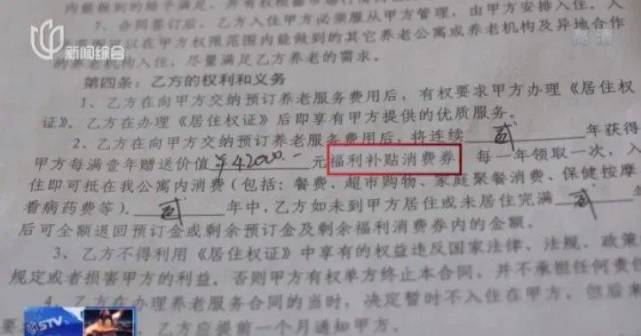 内能做到的给予满足
7、合同签订后，乙方入住甲方必须服从甲方管理，由甲方安排入住。
可以在甲方权限范围内能做到的其它养老公寓或养老机构及异地合作
的养老机构入住，尽量满足乙方养老的需求。
第四条：乙方的权利和义务
1、乙方在向甲方交纳预订养老服务费用后，有权要求甲方办理《居住权
证》。乙方在办理《居住权证》后即享有甲方提供的优质服务。
2、乙方在向甲方交纳预订养老服务费用后，将连续 贰 年获得
甲方每满壹年赠送价值 ￥42000.- 元福利补贴消费券，每一年领取一次，入
住即可抵在我公寓内消费（包括：餐费、超市购物、家庭聚餐消费、保健按摩
看病药费等）， 贰 年中，乙方如未到甲方居住或未居住完满 贰
后可全额退回预订金或剩余预订金及剩余福利消费券内的金额。
3、乙方不得利用《居住权证》中享有的权益违反国家法律、法规、政策
规定或者损害甲方的利益。否则甲方有权单方终止本合同，并不承担任何责
4、乙方在办理养老服务合同的当时，决定暂时不入住在甲方，但后来
乙方应提前一个月通知甲方。
新闻综合
高清
STV